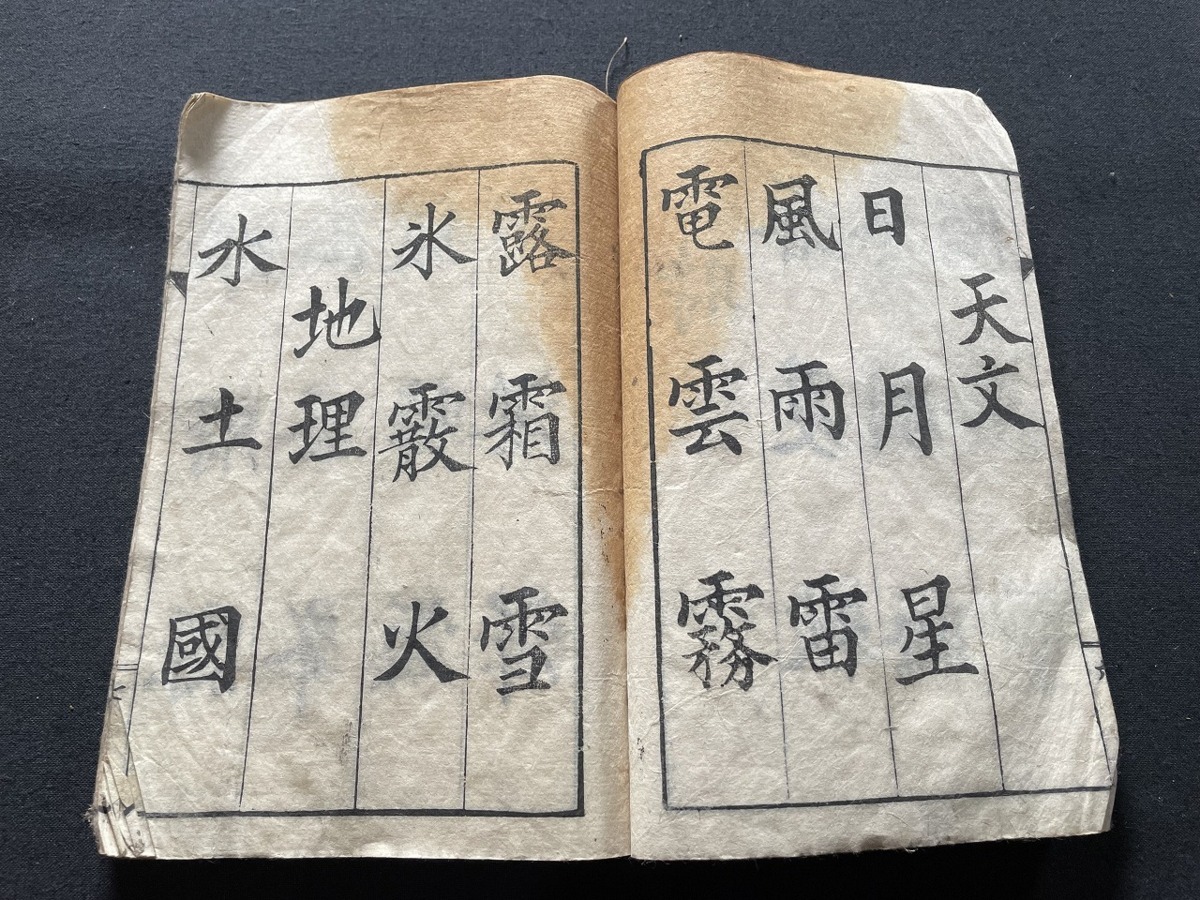 天文
日月星
風雨雷
電雲霧
露霜雪
氷霰火
地理
水土國